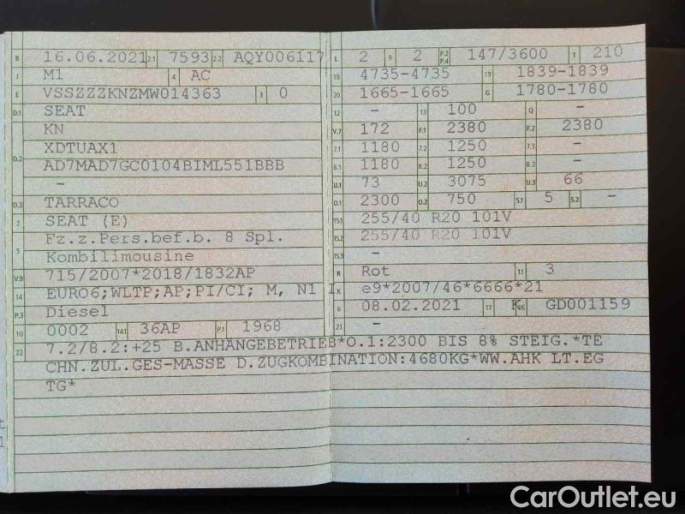 B 16.06.2021 2.1 7593 2.2 AQY006117
J M1 4 AC
E VSSZZZKNZMW014363 3 0
D.1 SEAT
KN
D.2 XDTUAX1
AD7MAD7GC0104BIML551BBB
-
D.3 TARRACO
2 SEAT (E)
5 Fz.z.Pers.bef.b. 8 Spl.
Kombilimousine
V.9 715/2007*2018/1832AP
14 EURO6;WLTP;AP;PI/CI; M, N1 I
P.3 Diesel
10 0002 14.1 36AP P.1 1968
L 2 9 2 P.2 P.4 147/3600 T 210
18 4735-4735 19 1839-1839
20 1665-1665 G 1780-1780
12 - 13 100 Q -
V.7 172 F.1 2380 F.2 2380
7.1 1180 7.2 1250 7.3 -
8.1 1180 8.2 1250 8.3 -
U.1 73 U.2 3075 U.3 66
O.1 2300 O.2 750 S.1 5 S.2 -
15.1 255/40 R20 101V
15.2 255/40 R20 101V
15.3 -
R Rot 11 3
K e9*2007/46*6666*21
6 08.02.2021 17 K 16 GD001159
21 -
22 7.2/8.2:+25 B.ANHÄNGEBETRIEB*O.1:2300 BIS 8% STEIG.*TE
CHN.ZUL.GES-MASSE D.ZUGKOMBINATION:4680KG*WW.AHK LT.EG
TG*
CarOutlet.eu